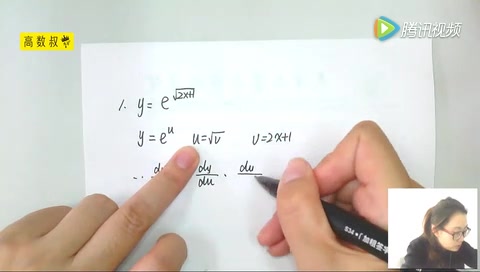 高数叔
腾讯视频
1. y = e^√(2x+1)
y = e^u u = √v v = 2x+1
∴ dy/du · du